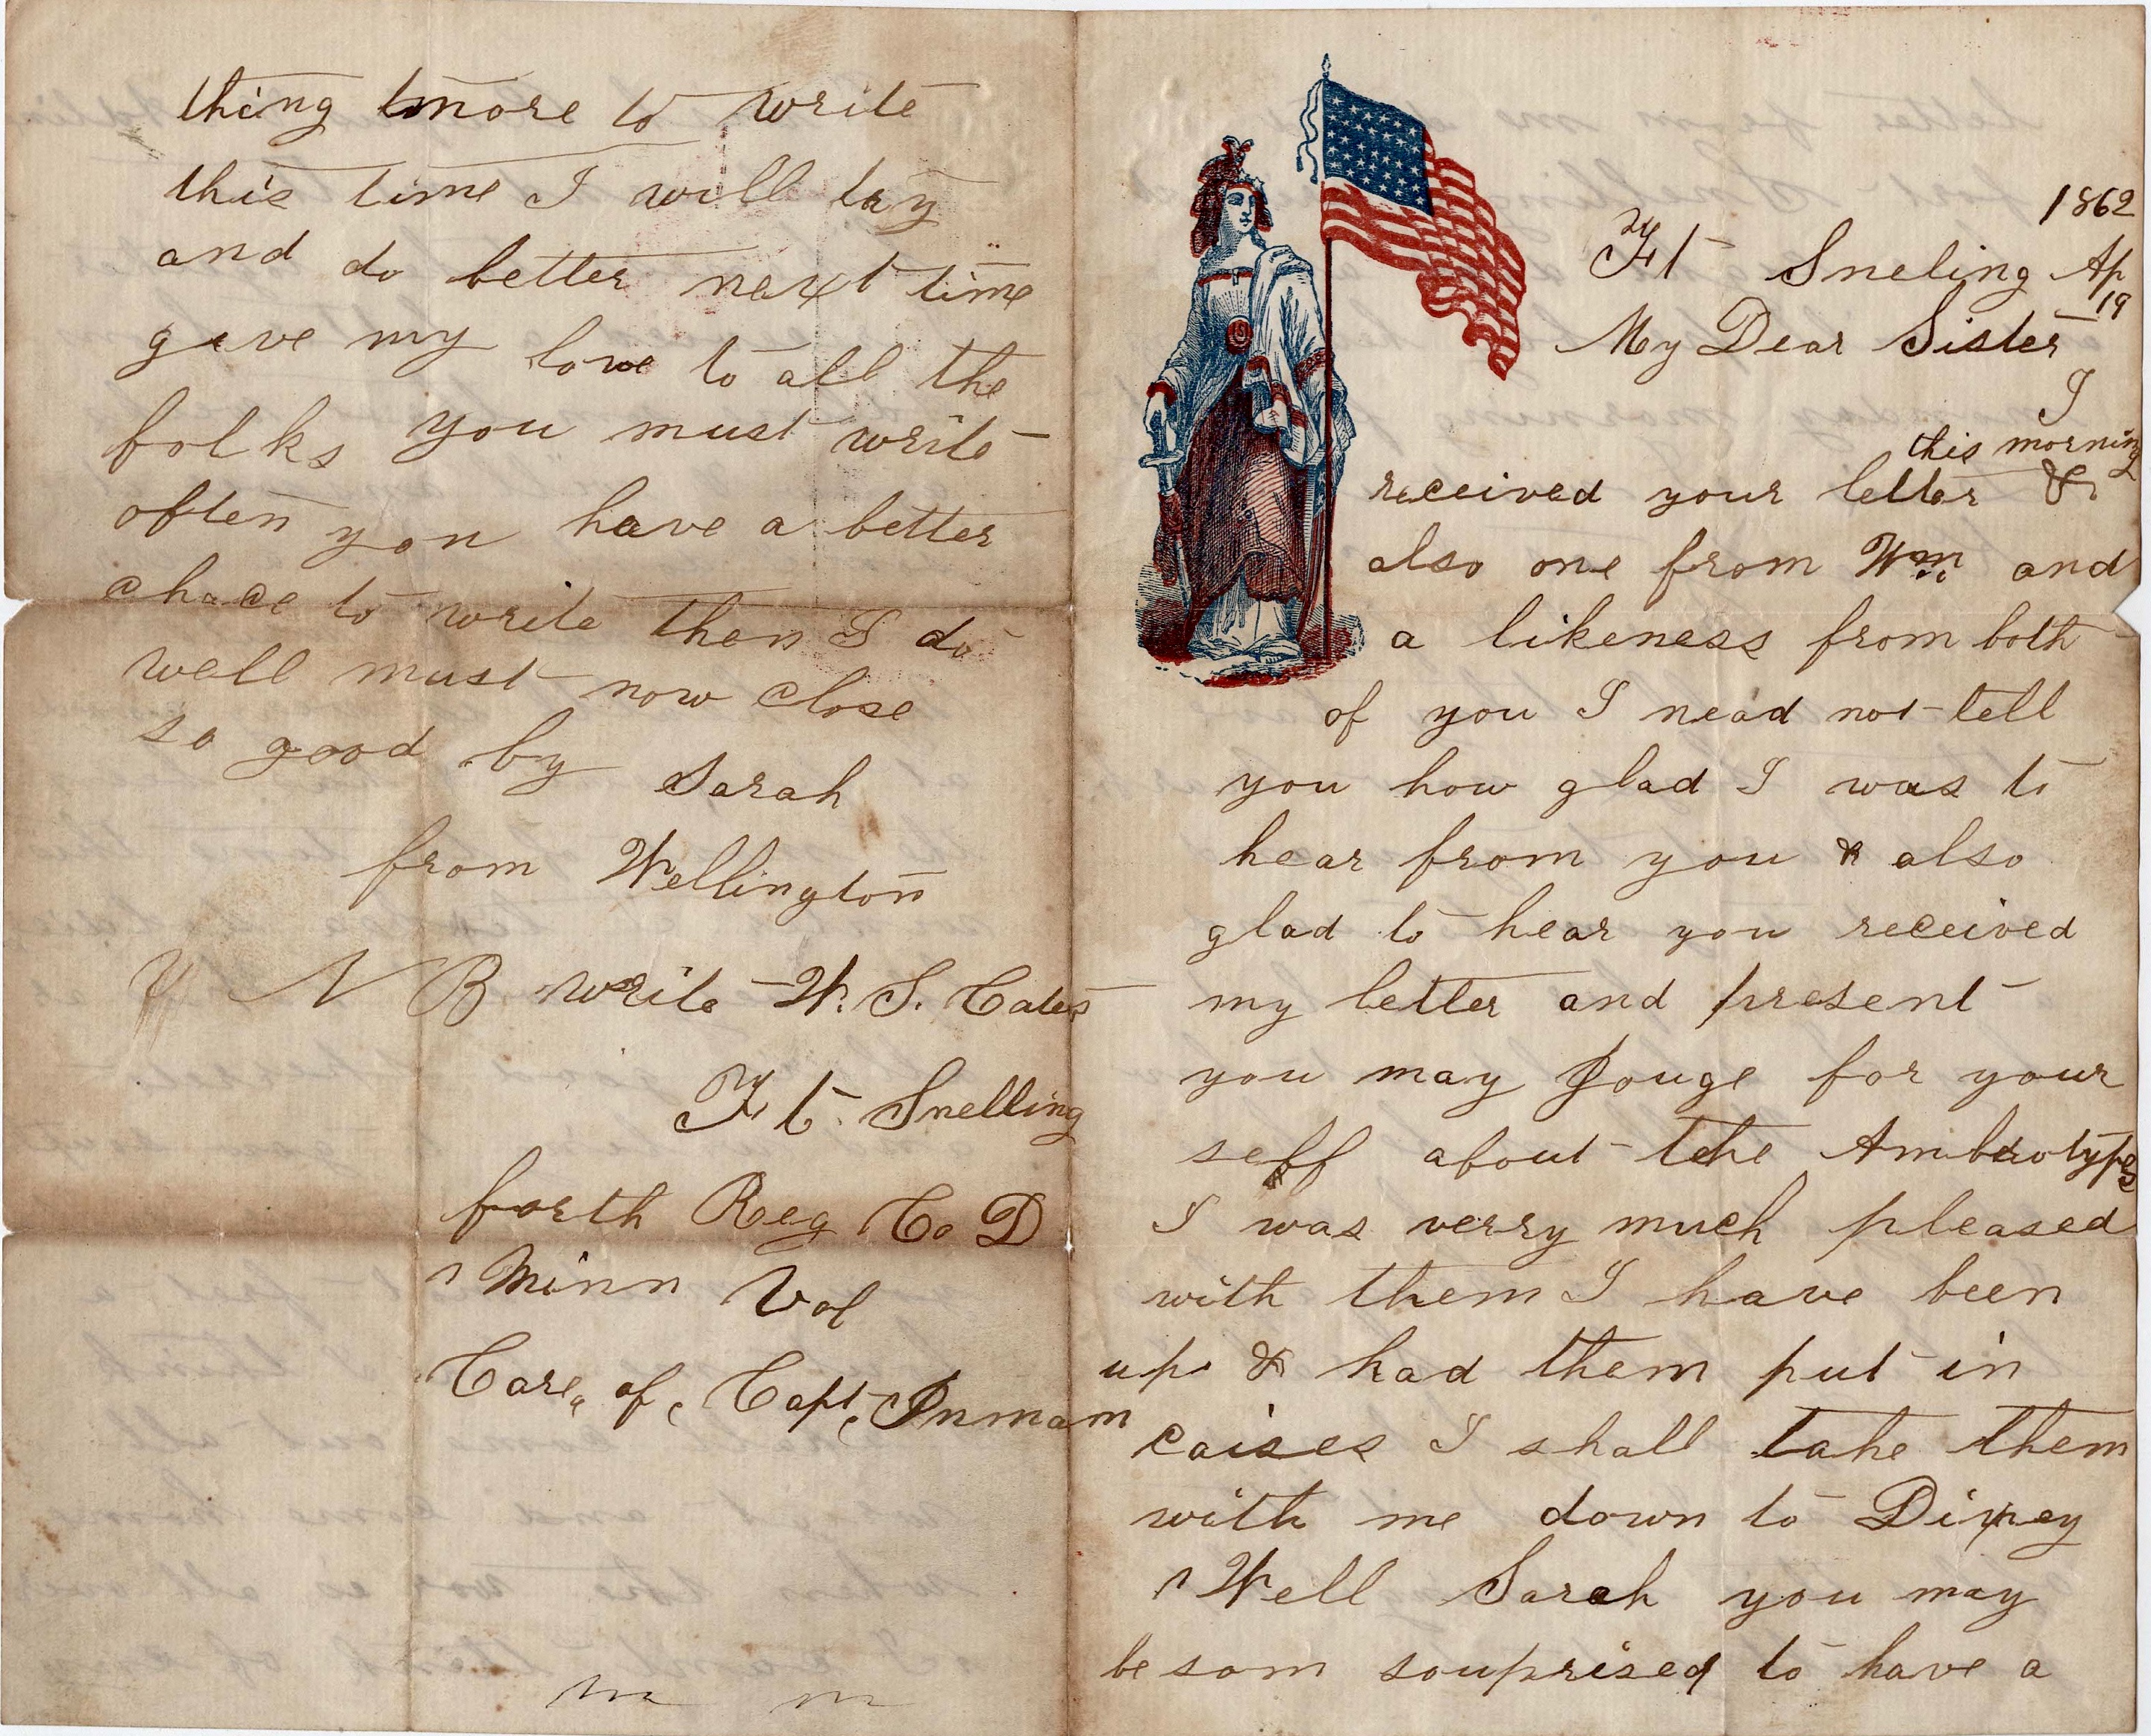 thing more to write
this time I will try
and do better next time
give my love to all the
folks you must write
often you have a better
chace to write then I do
well must now close
so good by Sarah
from Wellington
N B write W. S. Cates
Ft. Snelling
forth Reg Co D
Minn Vol
Care of Capt, Inmam
1862
Ft Sneling Ap
19
My Dear Sister
I
this morning
received your letter &
also one from Wm and
a likeness from both
of you I nead not tell
you how glad I was to
hear from you & also
glad to hear you received
my letter and present
you may Jouge for your
self about the Ambrotypes
I was verry much pleased
with them I have been
up & had them put in
caises I shall take them
with me down to Dixey
Well Sarah you may
be som souprised to have a